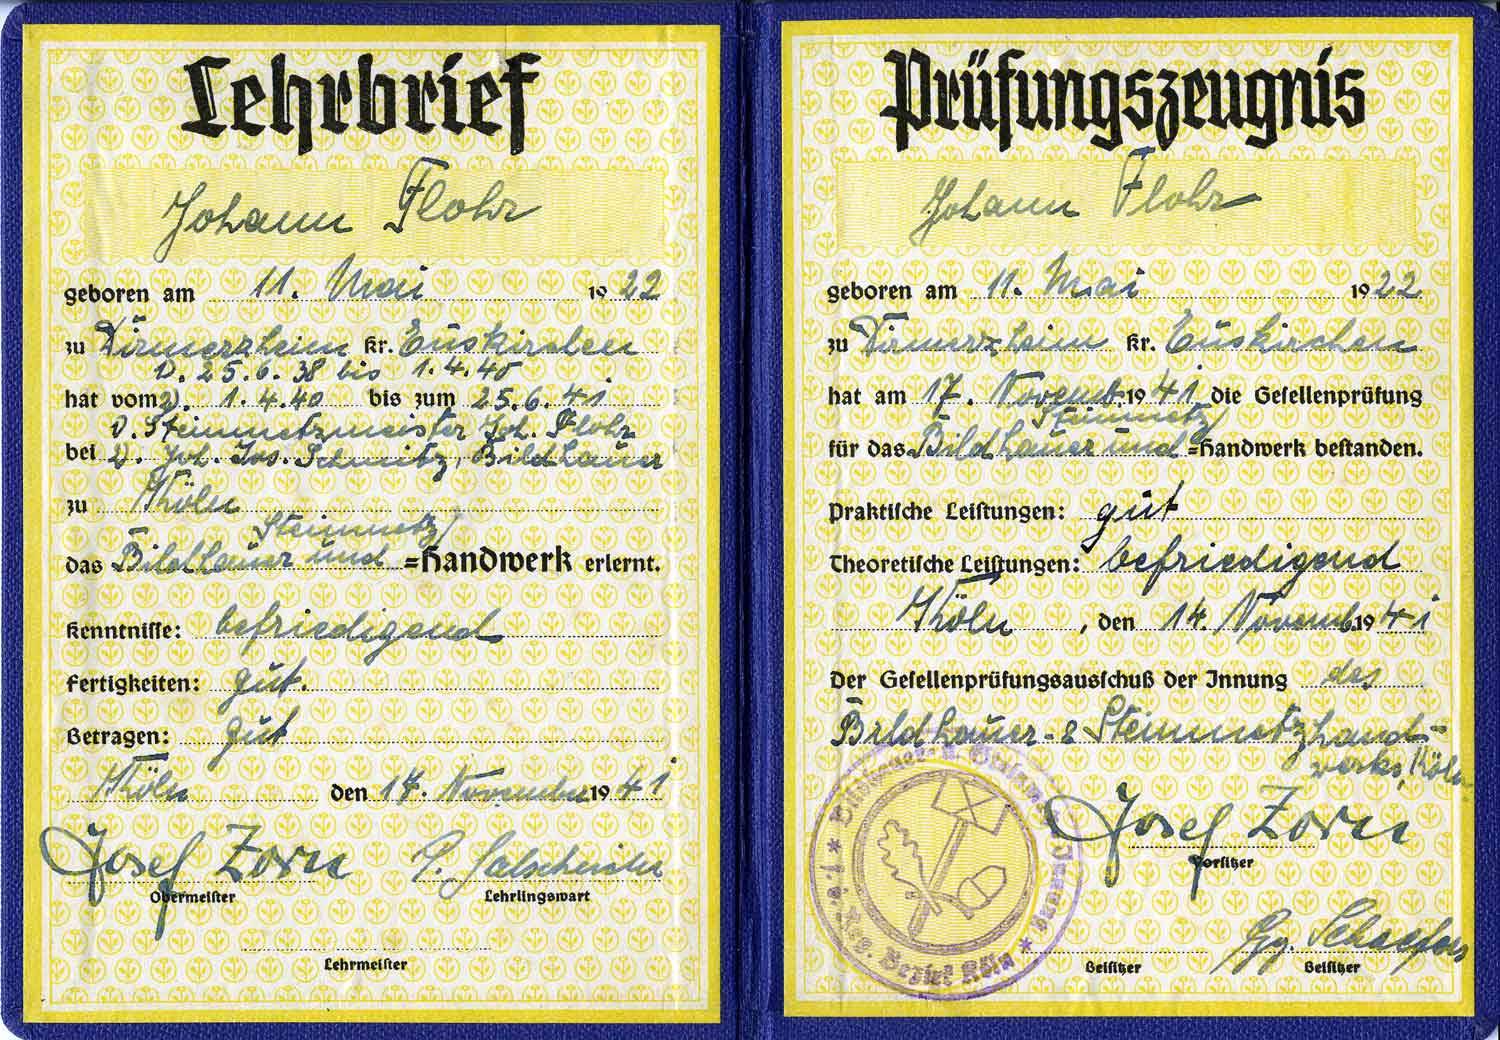 Lehrbrief
Johann Flohr
geboren am 11. Mai 1922
zu Dirmerzheim Kr. Euskirchen
v. 25.6.38 bis 1.4.40
hat vom v. 1.4.40 bis zum 25.6.41
v. Steinmetzmeister Joh. Flohr
bei v. Joh. Jos. Schmitz, Bildhauer
zu Köln
Steinmetz
das Bildhauer und =Handwerk erlernt.
Kenntnisse: befriedigend
Fertigkeiten: gut.
Betragen: gut
Köln den 17. November 1941
Josef Zorn
Obermeister Lehrlingswart
Lehrmeister
Prüfungszeugnis
Johann Flohr
geboren am 11. Mai 1922
zu Dirmerzheim Kr. Euskirchen
hat am 17. Novemb. 1941 die Gesellenprüfung
Steinmetz
für das Bildhauer und =Handwerk bestanden.
Praktische Leistungen: gut
Theoretische Leistungen: befriedigend
Köln, den 14. Novemb. 1941
Der Gesellenprüfungsausschuß der Innung des
Bildhauer- & Steinmetzhand-
werks, Köln
Josef Zorn
Vorsitzer
Gg. Schaefers
Beisitzer Beisitzer
Bildhauer- u. Steinmetz Innung * f. d. Reg. Bezirk Köln *